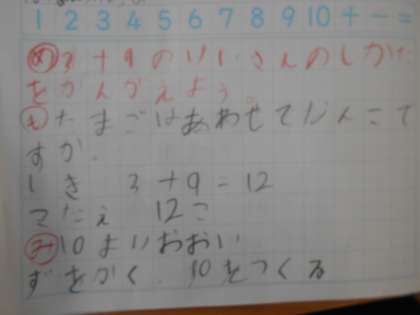 1 2 3 4 5 6 7 8 9 10 + − =
め 3+9のけいさんのしかた
をかんがえよう。
も たまごはあわせてなんこで
すか。
しき 3+9=12
こたえ 12こ
み 10よりおおい
ずをかく。10をつくる